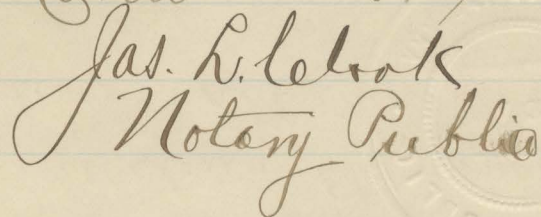 Jas. L. Clook
Notary Public